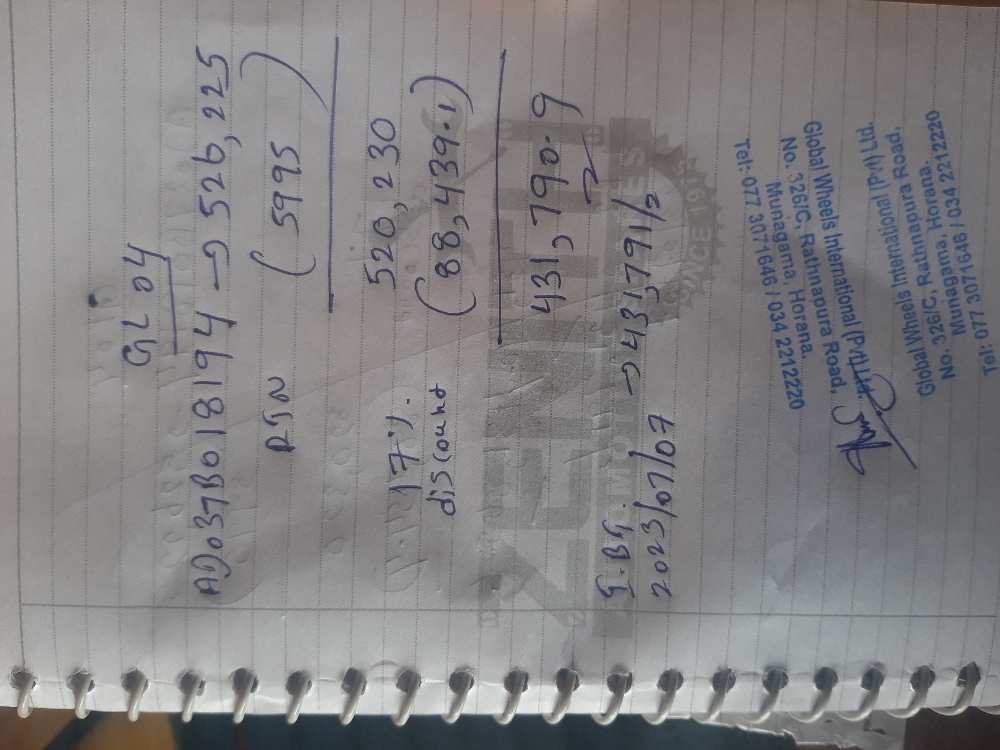 GL 04
AD037B018194 → 526,225
RTN (5995)
520,230
17%. discount (88,439.1)
431,790.9
I.BT.
2023/07/07 → 431,791/2
ZENITH
SINCE 19
Global Wheels International (Pvt) Ltd.
No. 326/C, Rathnapura Road,
Munagama, Horana.
Tel: 077 3071646 / 034 2212220
Global Wheels International (Pvt) Ltd.
No. 326/C, Rathnapura Road,
Munagama, Horana.
Tel: 077 3071646 / 034 2212220